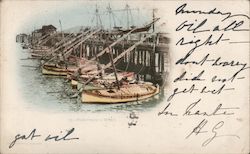 Sunday
oil all
right
dont worry
did not
get wet
in haste
HG
got oil